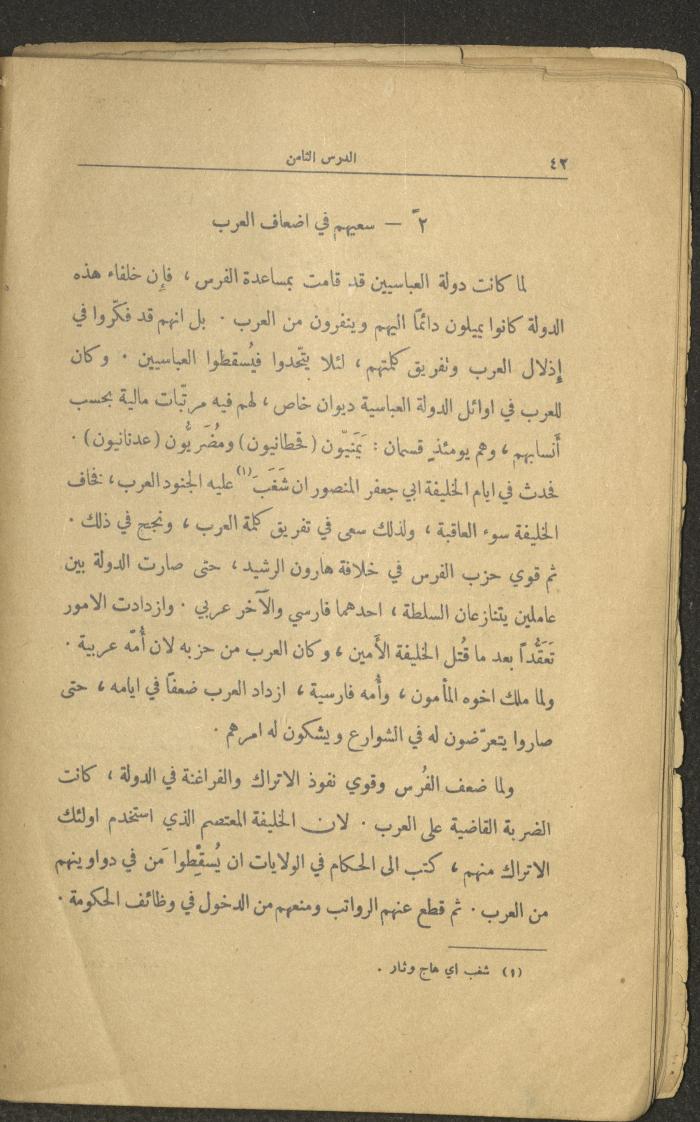 ٤٢ الدرس الثامن
٢ً — سعيهم في اضعاف العرب
لما كانت دولة العباسيين قد قامت بمساعدة الفرس ، فإِن خلفاء هذه
الدولة كانوا يميلون دائمًا اليهم وينفرون من العرب . بل انهم قد فكّروا في
إِذلال العرب وتفريق كلمتهم ، لئلا يتّحدوا فيُسقطوا العباسيين . وكان
للعرب في اوائل الدولة العباسية ديوان خاص ، لهم فيه مرتّبات مالية بحسب
أَنسابهم ، وهم يومئذٍ قسمان : يَمَنيّون (قحطانيون) ومُضَريُّون (عدنانيون) .
فحدث في ايام الخليفة ابي جعفر المنصور ان شَغَبَ (١) عليه الجنود العرب ، فخاف
الخليفة سوء العاقبة ، ولذلك سعى في تفريق كلمة العرب ، ونجح في ذلك .
ثم قوي حزب الفرس في خلافة هارون الرشيد ، حتى صارت الدولة بين
عاملين يتنازعان السلطة ، احدهما فارسي والآخر عربي . وازدادت الامور
تَعَقُّداً بعد ما قُتل الخليفة الأَمين ، وكان العرب من حزبه لان أُمّه عربية .
ولما ملك اخوه المأمون ، وأُمه فارسية ، ازداد العرب ضعفاً في ايامه ، حتى
صاروا يتعرّضون له في الشوارع ويشكون له امرهم .
ولما ضعف الفُرس وقوي نفوذ الاتراك والفراغنة في الدولة ، كانت
الضربة القاضية على العرب . لان الخليفة المعتصم الذي استخدم اولئك
الاتراك منهم ، كتب الى الحكام في الولايات ان يُسقِطوا مَن في دواوينهم
من العرب . ثم قطع عنهم الرواتب ومنعهم من الدخول في وظائف الحكومة .
(١) شغب اي هاج وثار .